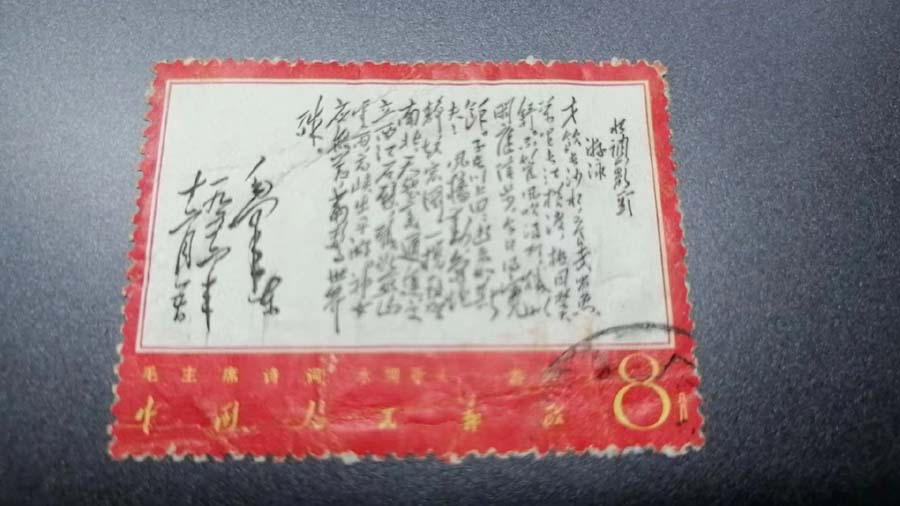 水调歌头
游泳
才饮长沙水又食武昌鱼。
万里长江横渡极目楚天
舒。不管风吹浪打胜似
闲庭信步今日得宽
馀。子在川上曰逝者如斯
夫。风樯动龟蛇
静起宏图。一桥飞架
南北天堑变通途。更
立西江石壁截断巫山
云雨高峡出平湖神女
应无恙当惊世界
殊。
毛泽东
一九五六年
十二月
毛主席诗词 水调歌头
中国人民邮政
8分